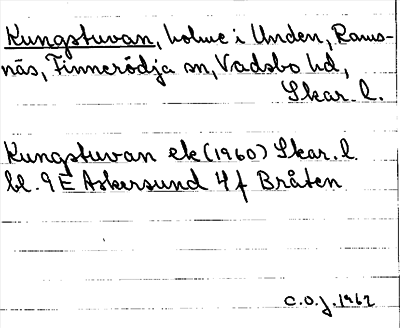 Kungstuvan, holme i Unden, Rams-
näs, Finnerödja sn, Vadsbo hd,
Skar. l.
Kungstuvan ek (1960) Skar. l.
bl. 9E Askersund 4f Bråten
C.O.J. 1962